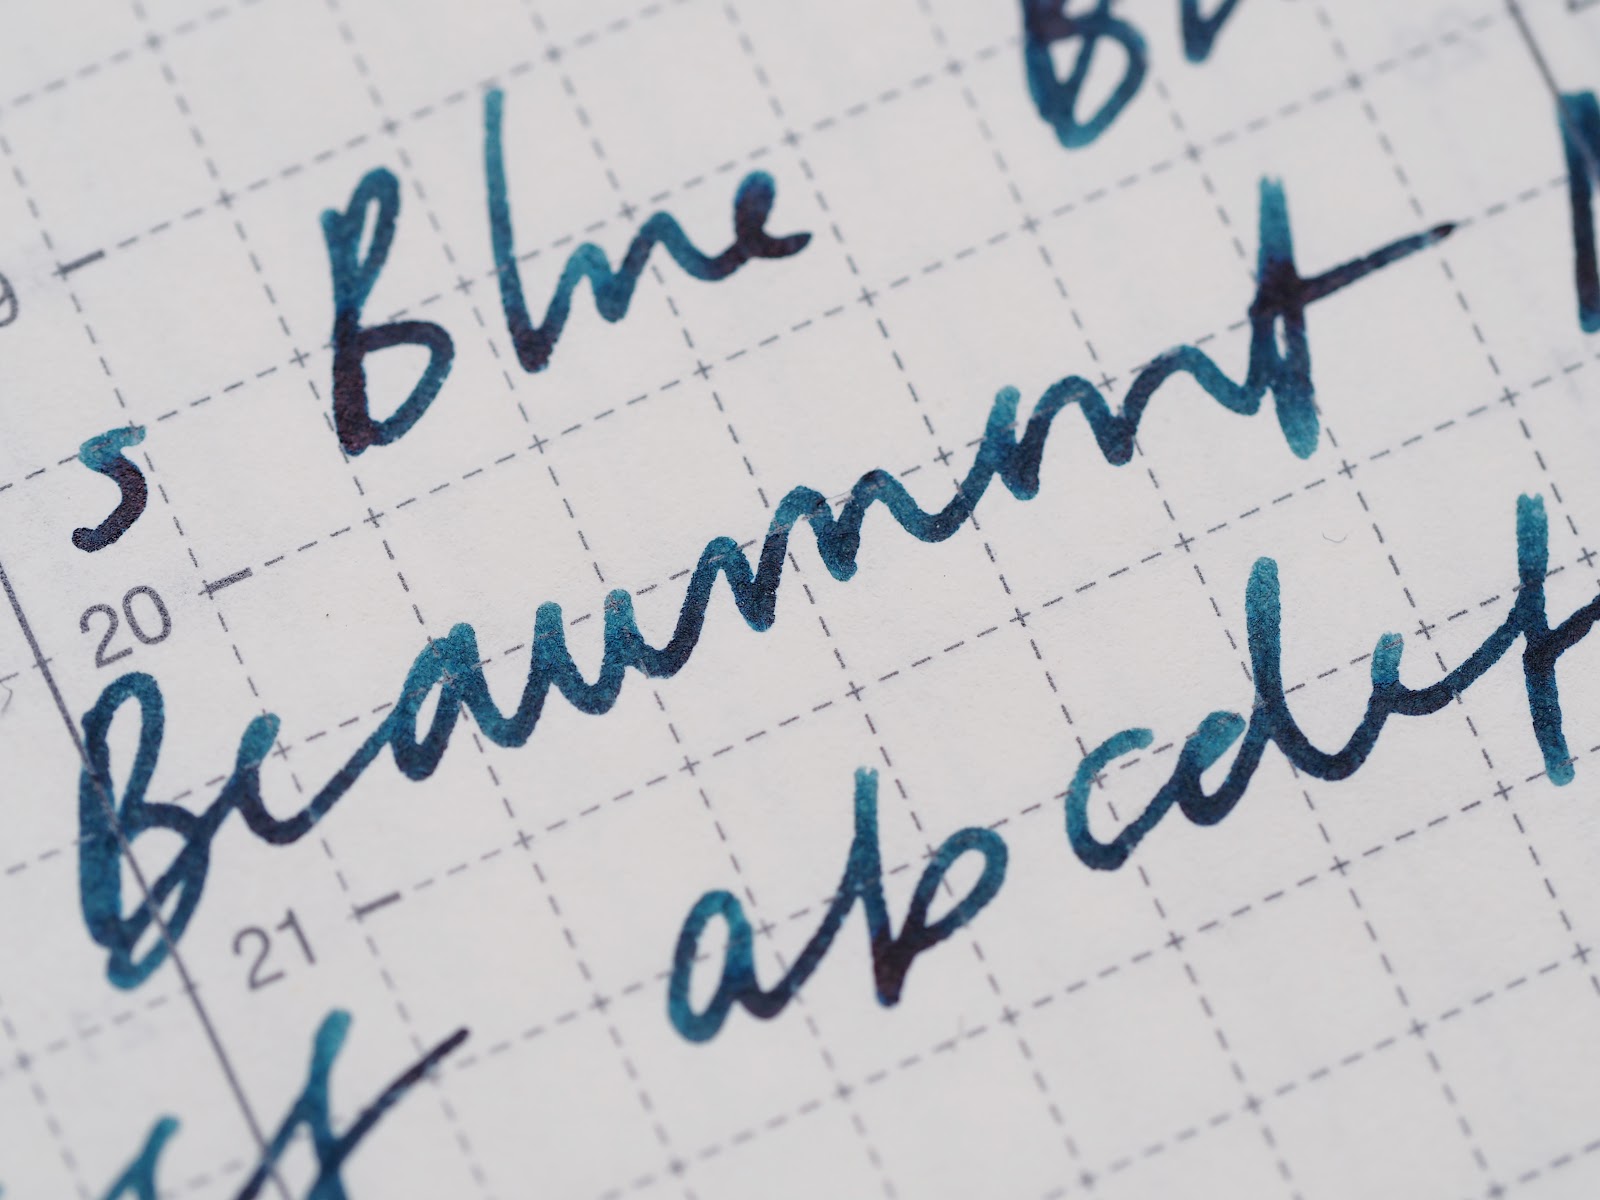 s Blue
20
Beaumont
21
ab cdef